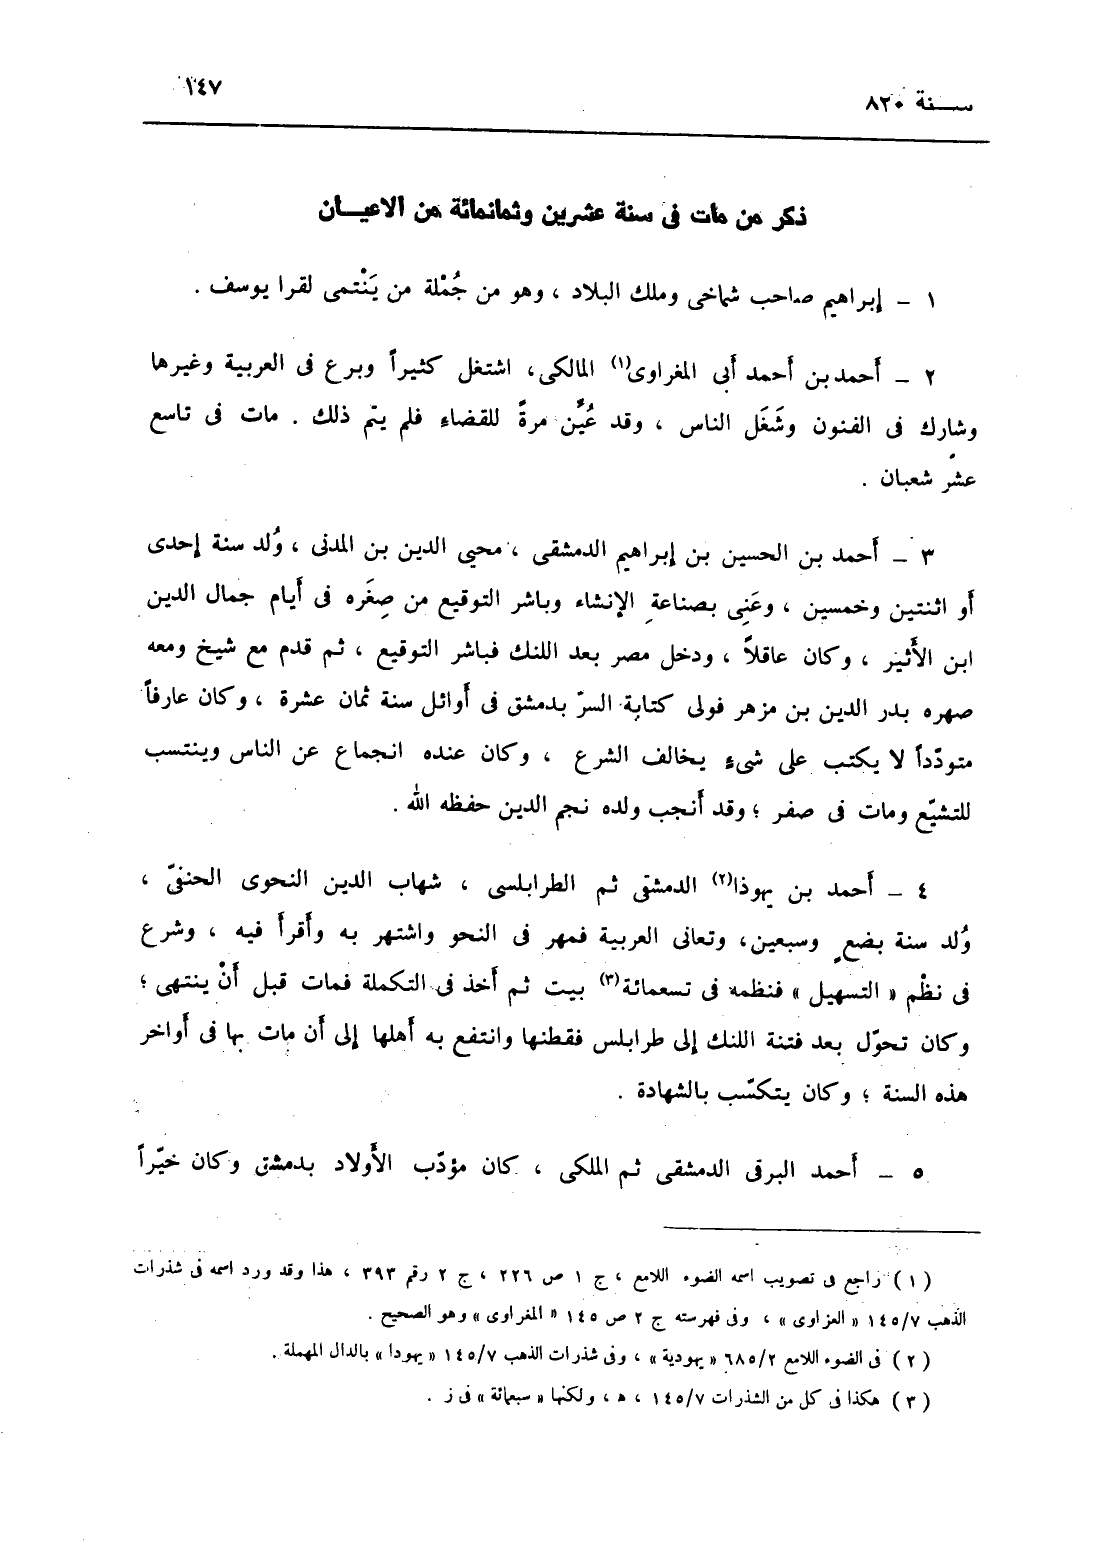 سنة ٨٢٠
١٤٧
ذكر من مات فى سنة عشرين وثمانمائة من الاعيان
١ – إبراهيم صاحب شماخى وملك البلاد ، وهو من جُمْلة من يَنْتمى لقرا يوسف .
٢ – أَحمد بن أَحمد أَبى المغراوى(١) المالكى، اشتغل كثيراً وبرع فى العربية وغيرها
وشارك فى الفنون وشَغَل الناس ، وقد عُيِّن مرةً للقضاء فلم يتم ذلك . مات فى تاسع
عشر شعبان .
٣ – أَحمد بن الحسين بن إبراهيم الدمشقى ، محيى الدين بن المدنى ، وُلد سنة إحدى
أَو اثنتين وخمسين ، وعَنِى بصناعةِ الإنشاء وباشر التوقيع من صِغَره فى أَيام جمال الدين
ابن الأَثير ، وكان عاقلاً ، ودخل مصر بعد اللنك فباشر التوقيع ، ثم قدم مع شيخ ومعه
صهره بدر الدين بن مزهر فولى كتابة السرّ بدمشق فى أَوائل سنة ثمان عشرة ، وكان عارفاً
متودّداً لا يكتب على شىءٍ يخالف الشرع ، وكان عنده انجماع عن الناس وينتسب
للتشيّع ومات فى صفر ؛ وقد أَنجب ولده نجم الدين حفظه الله .
٤ – أَحمد بن يهوذا(٢) الدمشقى ثم الطرابلسى ، شهاب الدين النحوى الحنفىّ ،
وُلد سنة بضعٍ وسبعين، وتعانى العربية فمهر فى النحو واشتهر به وأَقرأَ فيه ، وشرع
فى نظْم « التسهيل » فنظمه فى تسعمائة(٣) بيت ثم أَخذ فى التكملة فمات قبل أَنْ ينتهى ؛
وكان تحوّل بعد فتنة اللنك إلى طرابلس فقطنها وانتفع به أَهلها إلى أَن مات بها فى أَواخر
هذه السنة ؛ وكان يتكسّب بالشهادة .
٥ – أَحمد البرقى الدمشقى ثم الملكى ، كان مؤدّب الأَولاد بدمشق وكان خيّراً
(١) راجع فى تصويب اسمه الضوء اللامع ، ج ١ ص ٢٢٦ ، ج ٢ رقم ٣٩٣ ، هذا وقد ورد اسمه فى شذرات
الذهب ١٤٥/٧ « العزاوى » ، وفى فهرسته ج ٢ ص ١٤٥ « المغراوى » وهو الصحيح .
(٢) فى الضوء اللامع ٦٨٥/٢ « يهودية » ، وفى شذرات الذهب ١٤٥/٧ « يهودا » بالدال المهملة .
(٣) هكذا فى كل من الشذرات ١٤٥/٧ ، ه ، ولكنها « سبعمائة » فى ز .